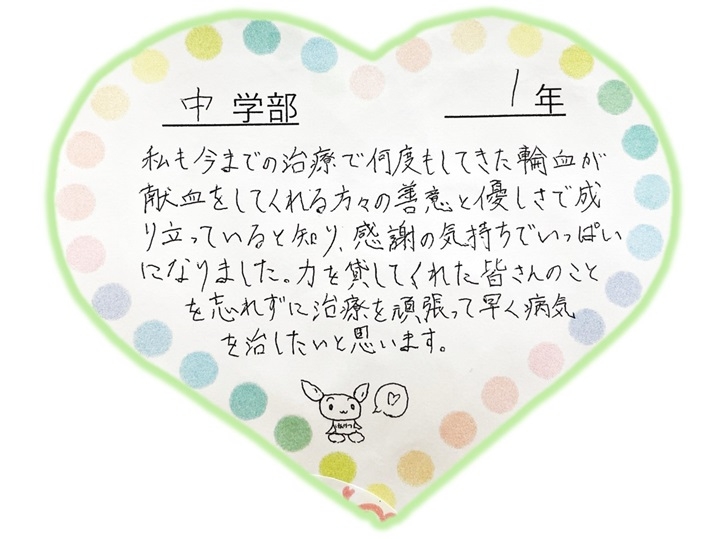 中学部 1年
私も今までの治療で何度もしてきた輸血が
献血をしてくれる方々の善意と優しさで成
り立っていると知り、感謝の気持ちでいっぱい
になりました。力を貸してくれた皆さんのこと
を忘れずに治療を頑張って早く病気
を治したいと思います。
けんけつ